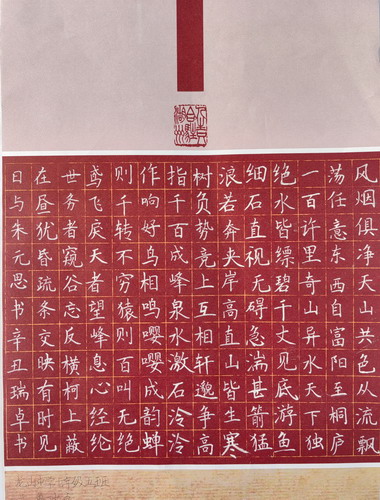 风烟俱净天山共色从流飘
荡任意东西自富阳至桐庐
一百许里奇山异水天下独
绝水皆缥碧千丈见底游鱼
细石直视无碍急湍甚箭猛
浪若奔夹岸高直山皆生寒
树负势竞上互相轩邈争高
指千百成峰泉水激石泠泠
作响好鸟相鸣嘤嘤成韵蝉
则千转不穷猿则百叫无绝
鸢飞戾天者望峰息心经纶
世务者窥谷忘反横柯上蔽
在昼犹昏疏条交映有时见
日与朱元思书辛丑瑞卓书